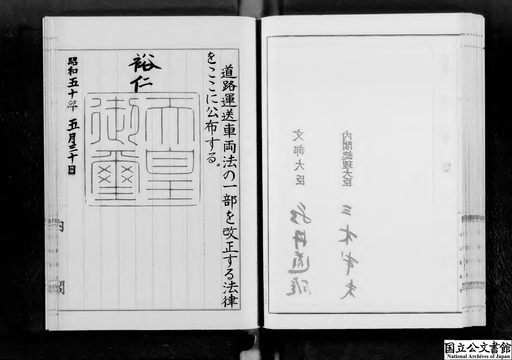 道路運送車両法の一部を改正する法律
をここに公布する。
裕仁
天皇
御璽
昭和五十年五月三十日
内閣
内閣総理大臣 三木武夫
文部大臣 永井道雄
国立公文書館
National Archives of Japan